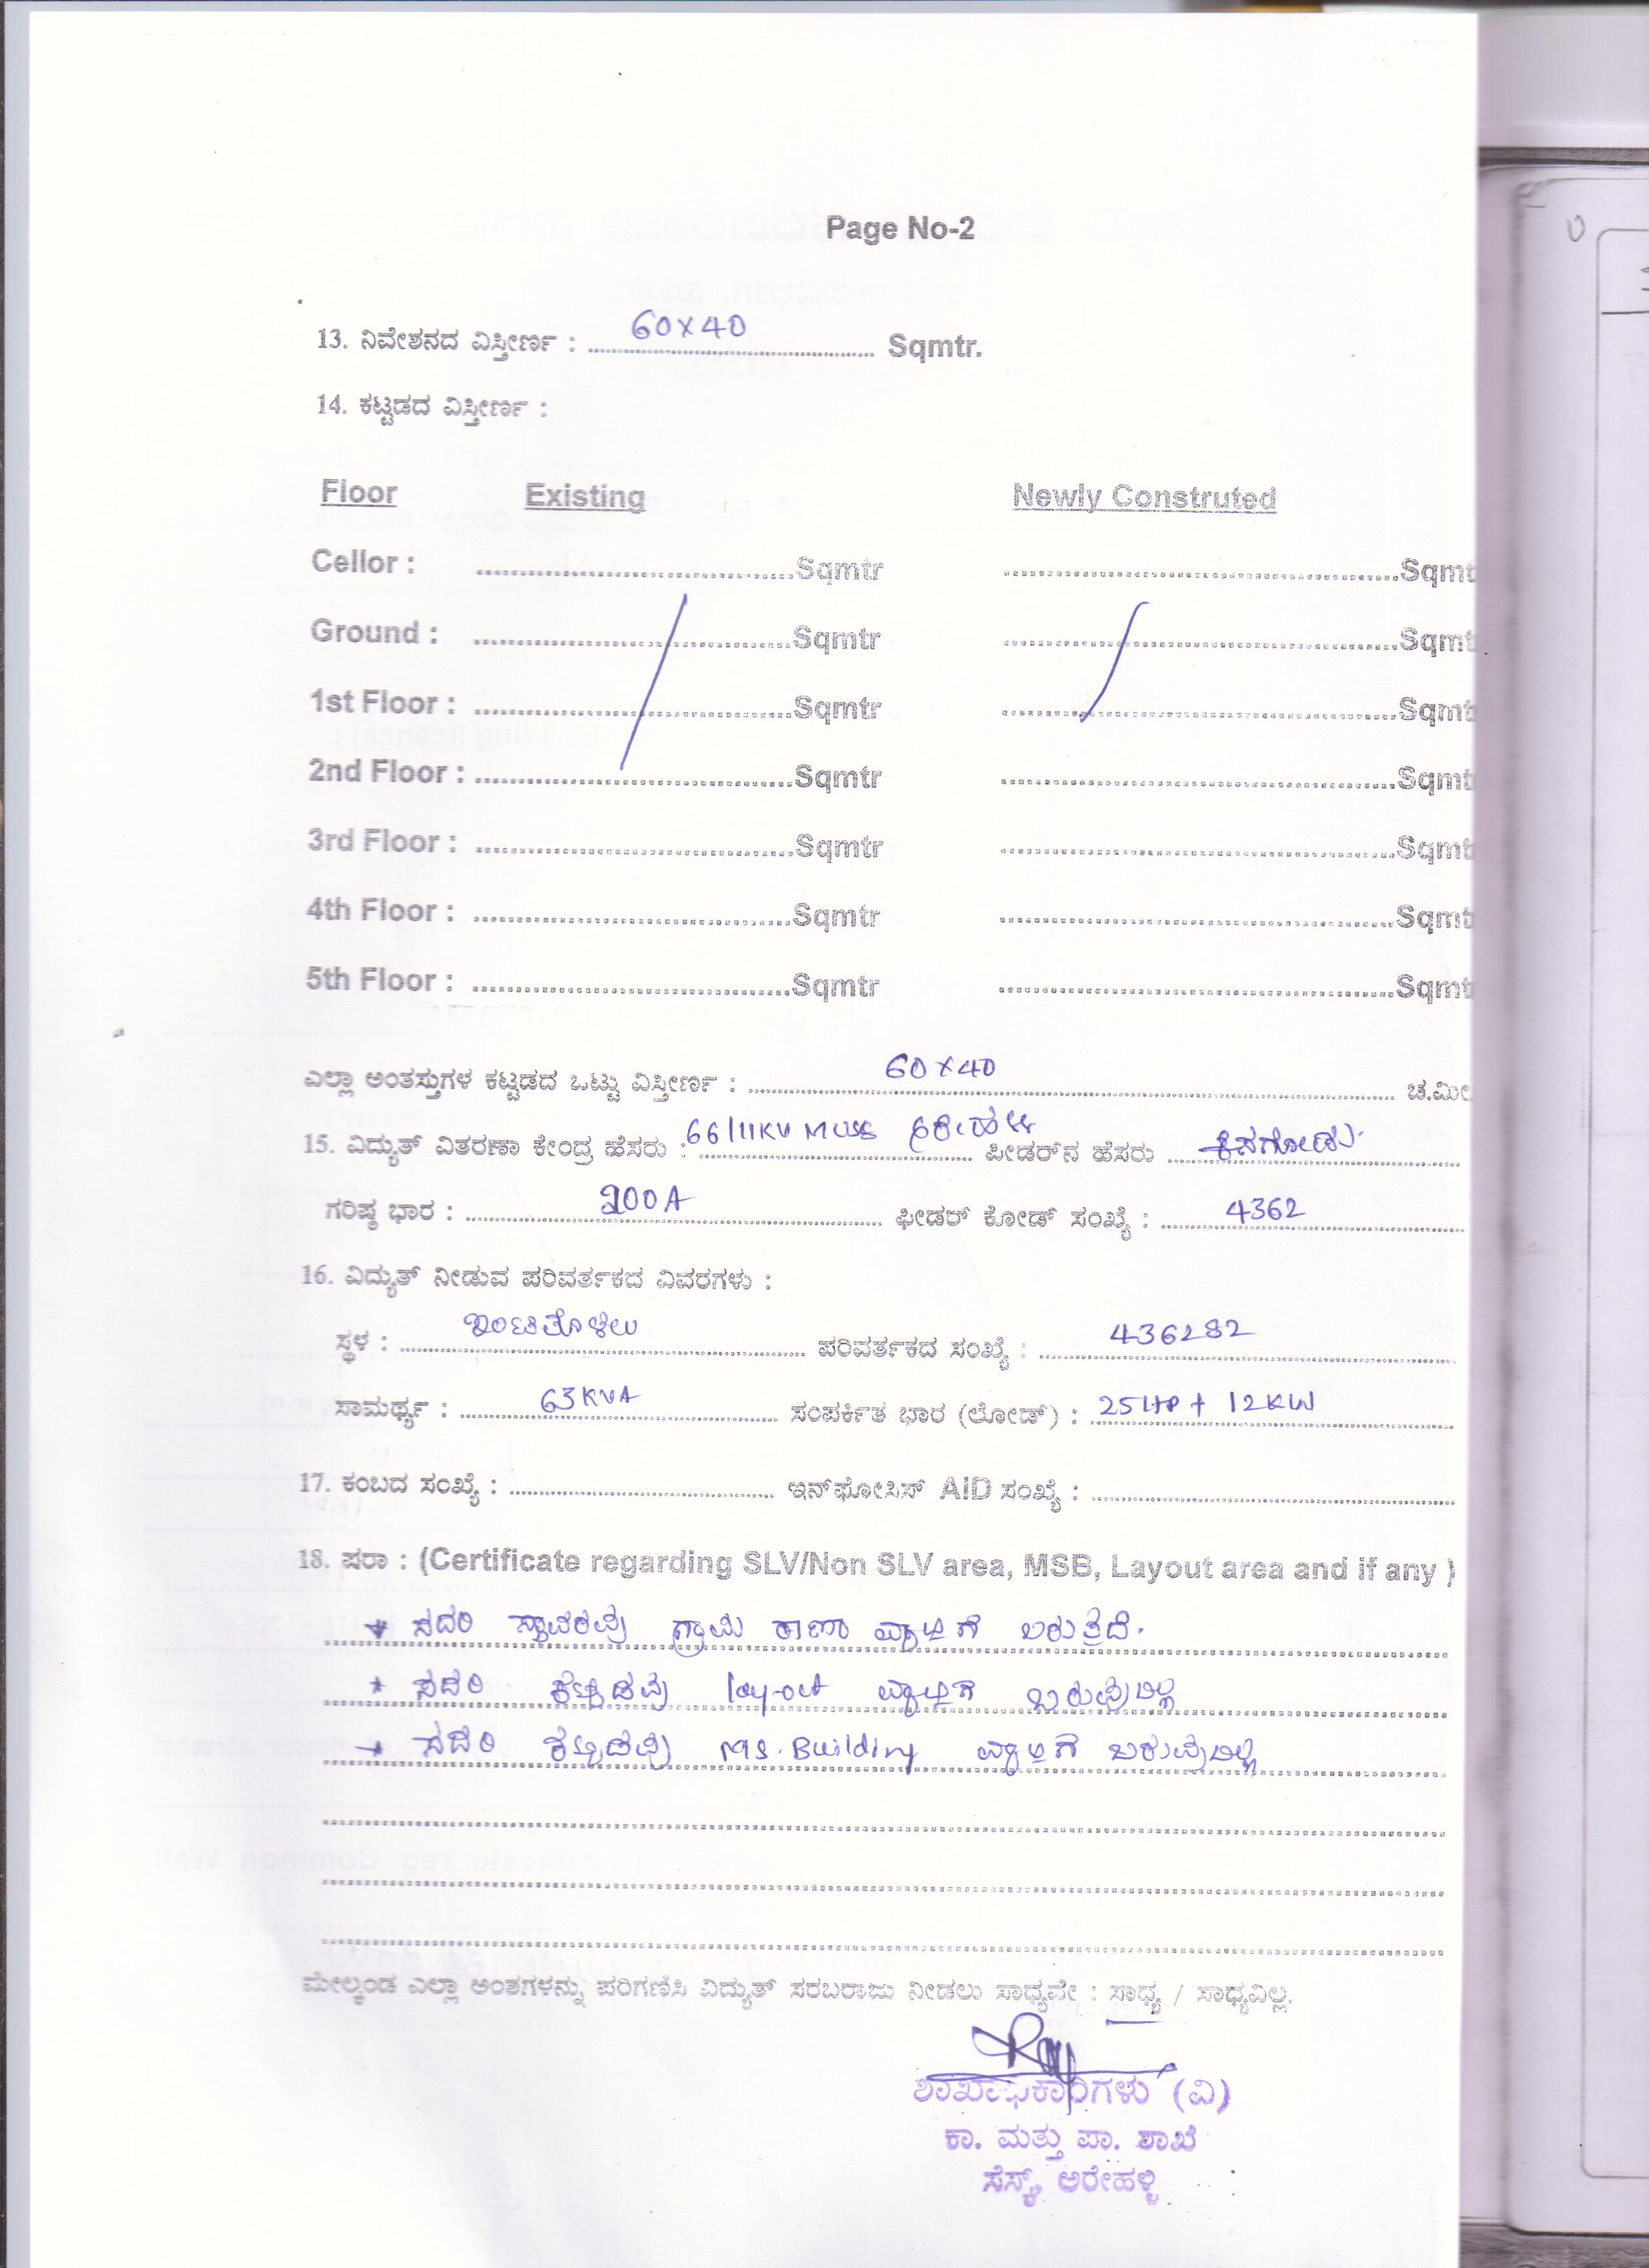 Page No-2
13. ನಿವೇಶನದ ವಿಸ್ತೀರ್ಣ : 60x40 Sqmtr.
14. ಕಟ್ಟಡದ ವಿಸ್ತೀರ್ಣ :
Floor Existing Newly Construted
Cellor : Sqmtr Sqmt
Ground : Sqmtr Sqmt
1st Floor : Sqmtr Sqmt
2nd Floor : Sqmtr Sqmt
3rd Floor : Sqmtr Sqmt
4th Floor : Sqmtr Sqmt
5th Floor : Sqmtr Sqmt
ಎಲ್ಲಾ ಅಂತಸ್ತುಗಳ ಕಟ್ಟಡದ ಒಟ್ಟು ವಿಸ್ತೀರ್ಣ : 60x40 ಚ.ಮೀ
15. ವಿದ್ಯುತ್ ವಿತರಣಾ ಕೇಂದ್ರ ಹೆಸರು : 66/11KV MUSS ಪೀಡರ್‌ನ ಹೆಸರು
ಗರಿಷ್ಠ ಭಾರ : 200A ಫೀಡರ್ ಕೋಡ್ ಸಂಖ್ಯೆ : 4362
16. ವಿದ್ಯುತ್ ನೀಡುವ ಪರಿವರ್ತಕದ ವಿವರಗಳು :
ಸ್ಥಳ : ಪರಿವರ್ತಕದ ಸಂಖ್ಯೆ : 436282
ಸಾಮರ್ಥ್ಯ : 63KVA ಸಂಪರ್ಕಿತ ಭಾರ (ಲೋಡ್) : 25HP + 12KW
17. ಕಂಬದ ಸಂಖ್ಯೆ : ಇನ್‌ಫೋಸಿಸ್ AID ಸಂಖ್ಯೆ :
18. ಷರಾ : (Certificate regarding SLV/Non SLV area, MSB, Layout area and if any )
* ಸದರಿ ಸ್ಥಾವರವು ಗ್ರಾಮ ಠಾಣಾ ವ್ಯಾಪ್ತಿಗೆ ಬರುತ್ತದೆ.
* ಸದರಿ ಕಟ್ಟಡವು lay-out ವ್ಯಾಪ್ತಿಗೆ ಬರುವುದಿಲ್ಲ
* ಸದರಿ ಕಟ್ಟಡವು MS. Building ವ್ಯಾಪ್ತಿಗೆ ಬರುವುದಿಲ್ಲ
ಮೇಲ್ಕಂಡ ಎಲ್ಲಾ ಅಂಶಗಳನ್ನು ಪರಿಗಣಿಸಿ ವಿದ್ಯುತ್ ಸರಬರಾಜು ನೀಡಲು ಸಾಧ್ಯವೇ : ಸಾಧ್ಯ / ಸಾಧ್ಯವಿಲ್ಲ.
ಶಾಖಾಧಿಕಾರಿಗಳು (ವಿ)
ಕಾ. ಮತ್ತು ಪಾ. ಶಾಖೆ
ಸೆಸ್ಕ್, ಅರೇಹಳ್ಳಿ